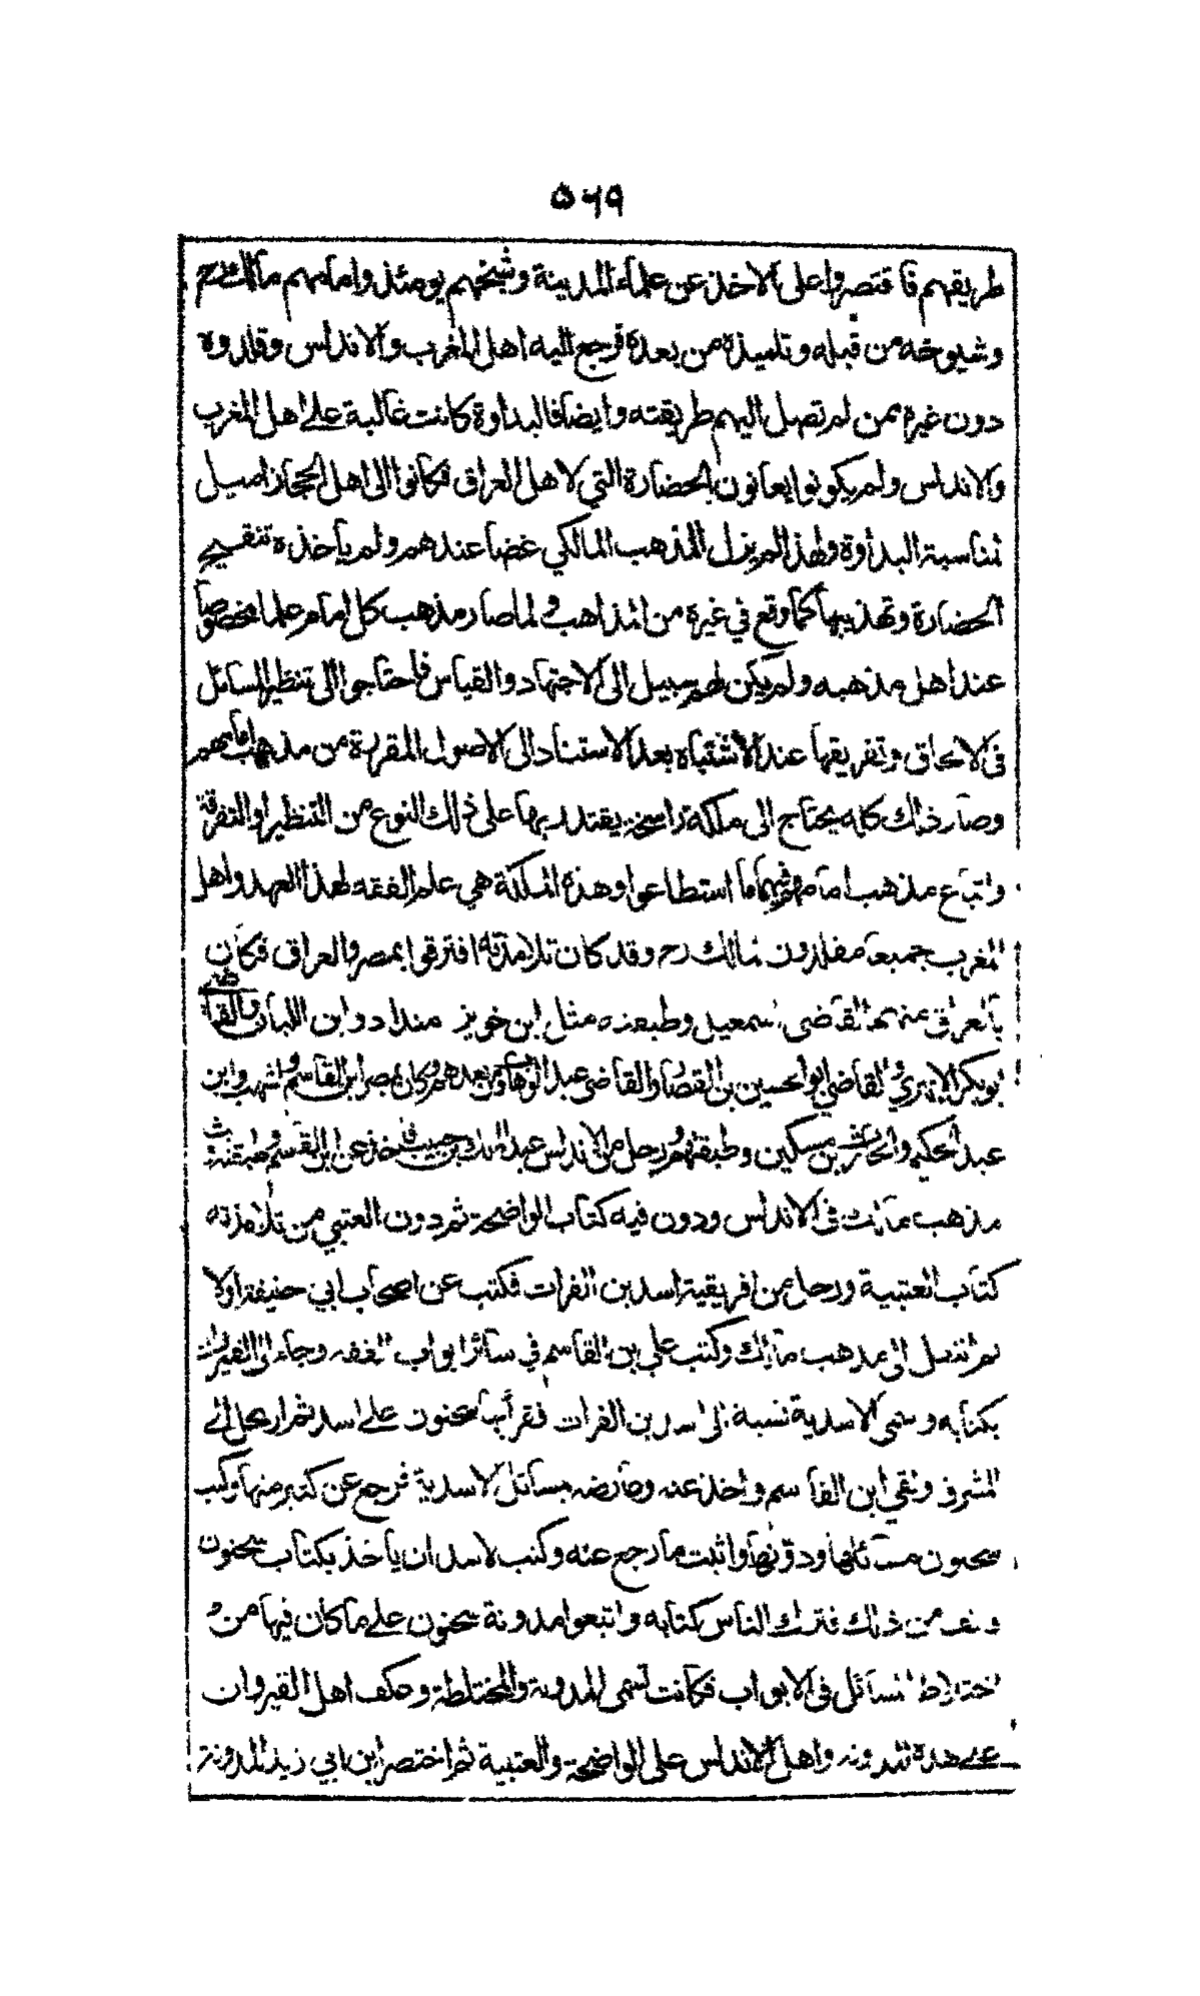 ٥٦٩
طريقهم فاقتصروا على الاخذ عن علماء المدينة وشيخهم يومئذ وامامهم مالك رح
وشيوخه من قبله وتلميذه من بعده فرجع اليه اهل المغرب والاندلس وقلدوه
دون غيره ممن لم تصل اليهم طريقته وايضا فالبداوة كانت غالبة على اهل المغرب
والاندلس ولم يكونوا يعانون الحضارة التي لاهل العراق فكانوا الى اهل الحجاز اميل
لمناسبة البداوة ولهذا لم يزل المذهب المالكي غضا عندهم ولم ياخذه تنقيح
الحضارة وتهذيبها كما وقع في غيره من المذاهب ولما صار مذهب كل امام علما مخصوصا
عند اهل مذهبه ولم يكن لهم سبيل الى الاجتهاد والقياس فاحتاجوا الى تنظير المسائل
في الالحاق وتفريقها عند الاشتباه بعد الاستناد الى الاصول المقررة من مذهب امامهم
وصار ذلك كله يحتاج الى ملكة راسخة يقتدر بها على ذلك النوع من التنظير او التفرقة
واتباع مذهب امامهم فيهما ما استطاعوا وهذه الملكة هي علم الفقه لهذا العهد واهل
المغرب جميعا مقلدون لمالك رح وقد كان تلامذته افترقوا بمصر والعراق فكان
بالعراق منهم القاضي اسمعيل وطبقته مثل ابن خويز منداد وابن اللبان والقاضي
ابوبكر الابهري والقاضي ابوالحسين بن القصار والقاضي عبد الوهاب ومن بعدهم وكان بمصر ابن القاسم واشهب وابن
عبد الحكيم والحارث بن مسكين وطبقتهم ورحل من الاندلس عبد الملك بن حبيب فاخذ عن ابن القاسم وطبقته وبث
مذهب مالك في الاندلس ودون فيه كتاب الواضحة ثم دون العتبي من تلامذته
كتاب العتبية ورحل من افريقية اسد بن الفرات فكتب عن اصحاب ابي حنيفة اولا
ثم انتقل الى مذهب مالك وكتب على بن القاسم في سائر ابواب الفقه وجاء الى القيروان
بكتابه وسمى الاسدية نسبة الى اسد بن الفرات فقرأ بها سحنون على اسد ثم ارتحل الى
المشرق ولقي ابن القاسم واخذ عنه وعارضه بمسائل الاسدية فرجع عن كثير منها وكتب
سحنون مسائلها ودونها واثبت ما رجع عنه وكتب لاسد ان ياخذ بكتاب سحنون
فانف من ذلك فترك الناس كتابه واتبعوا مدونة سحنون على ما كان فيها من
اختلاط المسائل في الابواب فكانت تسمى المدونة والمختلطة وعكف اهل القيروان
على هذه المدونة واهل الاندلس على الواضحة والعتبية ثم اختصر ابن ابي زيد المدونة